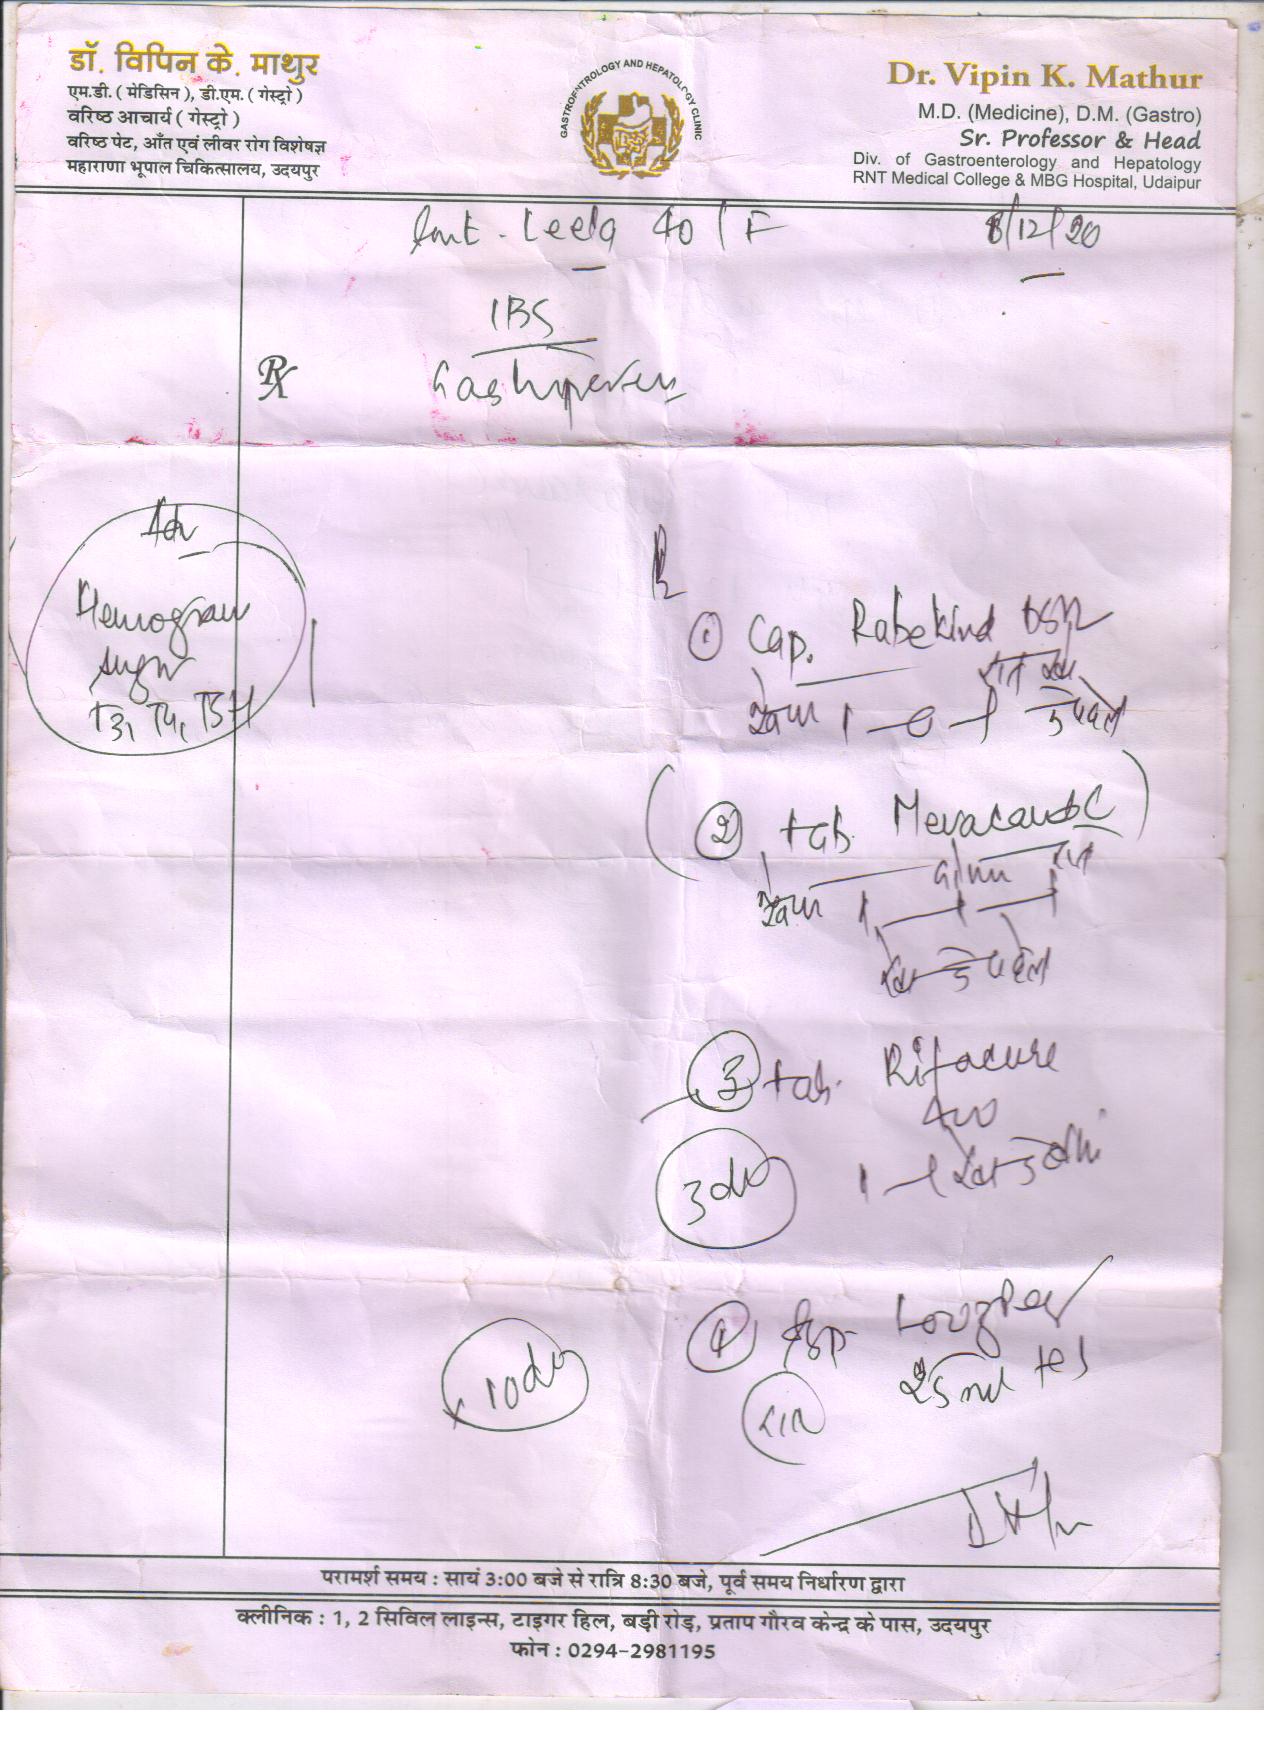 डॉ. विपिन के. माथुर
एम.डी. ( मेडिसिन ), डी.एम. ( गेस्ट्रो )
वरिष्ठ आचार्य ( गेस्ट्रो )
वरिष्ठ पेट, आँत एवं लीवर रोग विशेषज्ञ
महाराणा भूपाल चिकित्सालय, उदयपुर
GASTROENTROLOGY AND HEPATOLOGY CLINIC
Dr. Vipin K. Mathur
M.D. (Medicine), D.M. (Gastro)
Sr. Professor & Head
Div. of Gastroenterology and Hepatology
RNT Medical College & MBG Hospital, Udaipur
Smt. Leela 40 / F
8/12/20
IBS
Rx
Adv
Hemogram
Sugar
T3, T4, TSH
Rx
① Cap. Rabekind DSR
1 - 0 - 1
② tab.
1 - 1 - 1
③ tab. Rifacure
400
3 d
1 - 1
④
25 ml
रात
x 10 d
परामर्श समय : सायं 3:00 बजे से रात्रि 8:30 बजे, पूर्व समय निर्धारण द्वारा
क्लीनिक : 1, 2 सिविल लाइन्स, टाइगर हिल, बड़ी रोड़, प्रताप गौरव केन्द्र के पास, उदयपुर
फोन : 0294-2981195